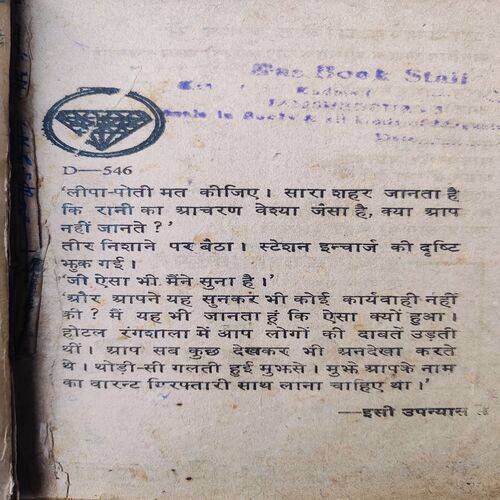 Das Book Stall
Kadma
D—546
'लीपा-पोती मत कीजिए। सारा शहर जानता है
कि रानी का आचरण वेश्या जैसा है, क्या आप
नहीं जानते ?'
तीर निशाने पर बैठा। स्टेशन इन्चार्ज की दृष्टि
झुक गई।
'जी ऐसा भी मैंने सुना है।'
'और आपने यह सुनकर भी कोई कार्यवाही नहीं
की ? मैं यह भी जानता हूं कि ऐसा क्यों हुआ।
होटल रंगशाला में आप लोगों की दाबतें उड़ती
थीं। आप सब कुछ देखकर भी अनदेखा करते
थे। थोड़ी-सी गलती हुई मुझसे। मुझे आपके नाम
का वारन्ट गिरफ्तारी साथ लाना चाहिए था।'
—इसी उपन्यास